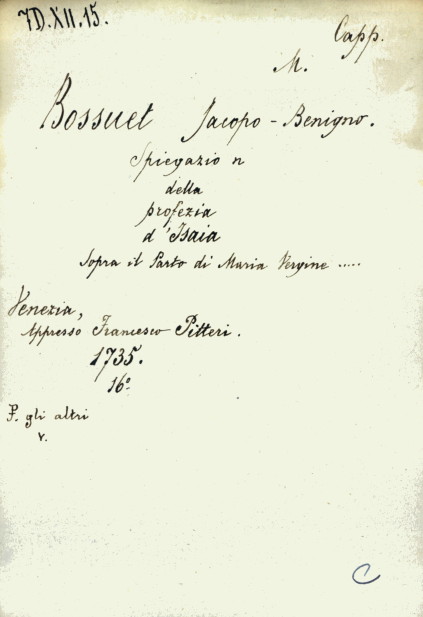 7D.XII.15.
Capp.
M.
Bossuet Jacopo - Benigno.
Spiegazion
della
profezia
d'Isaia
sopra il Parto di Maria Vergine .....
Venezia,
Appresso Francesco Pitteri.
1735.
16º
P. gli altri
v.
C